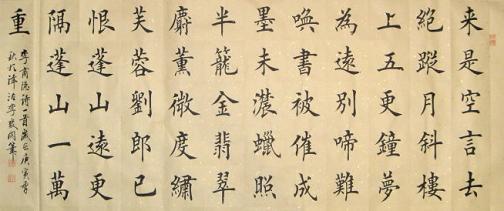 来是空言去
絕蹤月斜樓
上五更鐘夢
為遠別啼難
喚書被催成
墨未濃蠟照
半籠金翡翠
麝薰微度繡
芙蓉劉郎已
恨蓬山遠更
隔蓬山一萬
重
李商隱詩一首歲庚寅
秋於津沽李